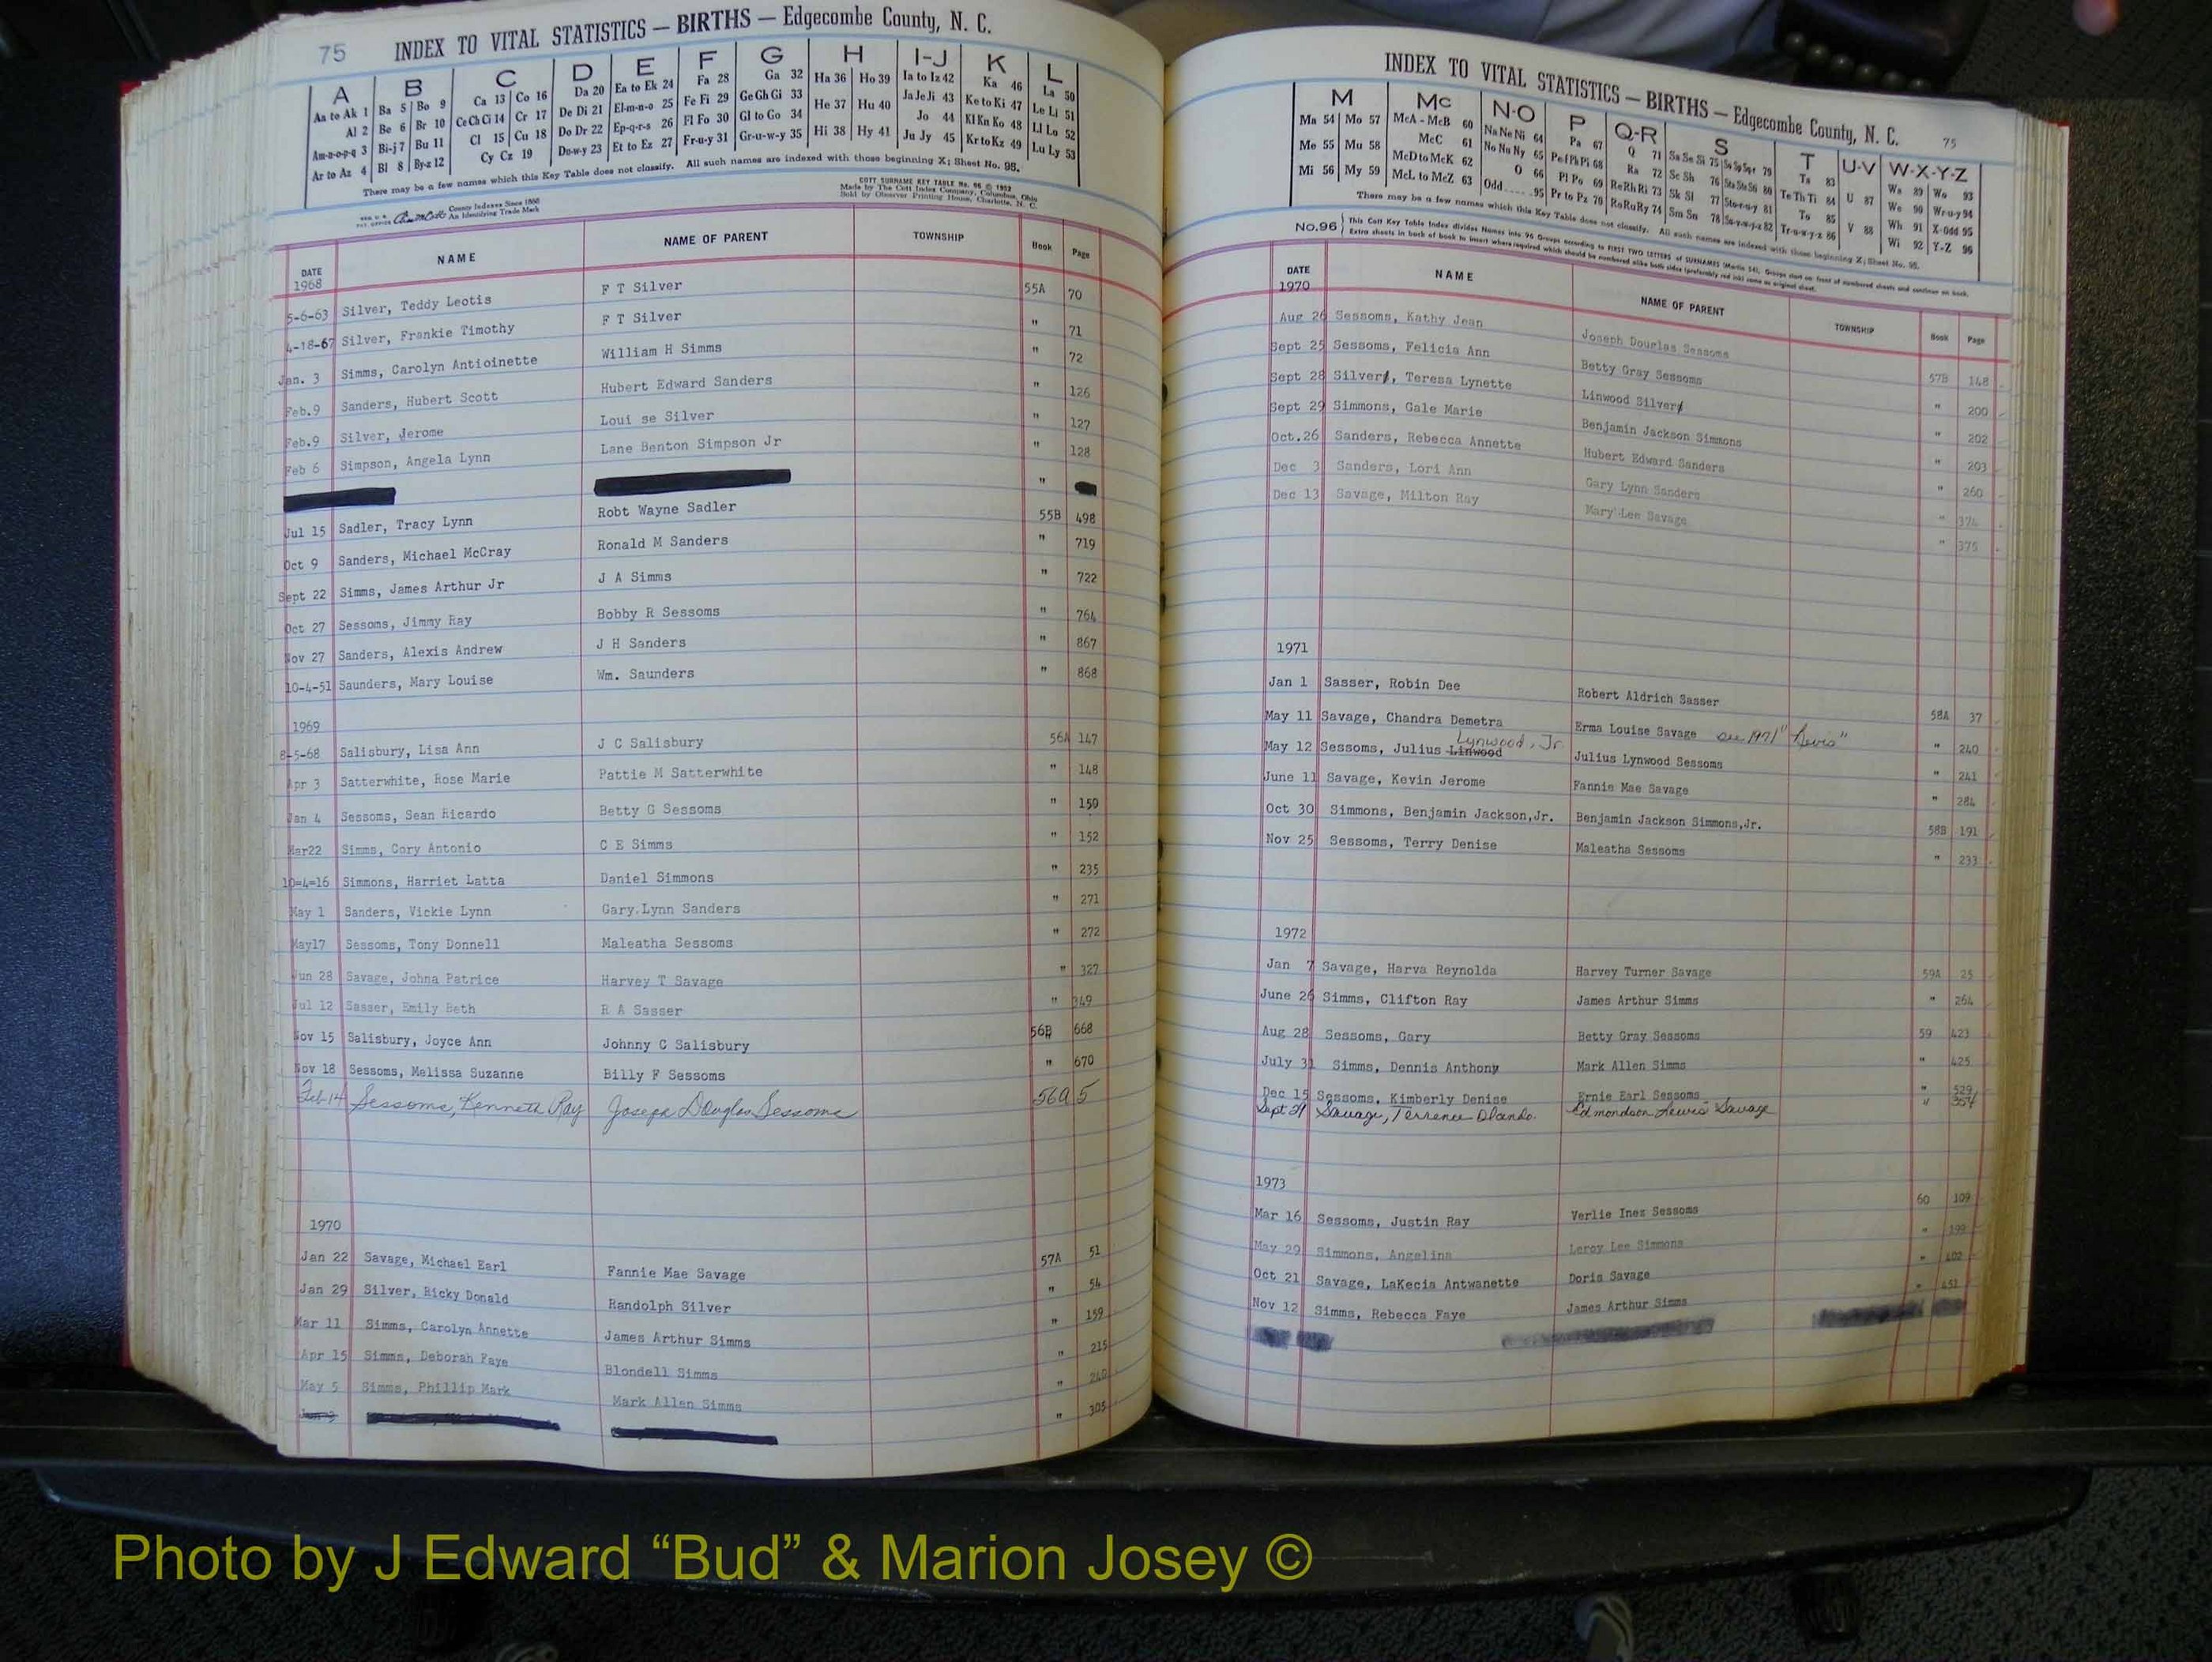 75 INDEX TO VITAL STATISTICS — BIRTHS — Edgecombe County, N. C.
A B C D E F G H I-J K L
Aa to Ak 1 Ba 5 Bo 9 Ca 13 Co 16 Da 20 Ea to Ek 24 Fa 28 Ga 32 Ha 36 Ho 39 Ia to Iz 42 Ka 46 La 50
Al 2 Be 6 Br 10 Ce Ch Ci 14 Cr 17 De Di 21 El-m-n-o 25 Fe Fi 29 Ge Gh Gi 33 He 37 Hu 40 Ja Je Ji 43 Ke to Ki 47 Le Li 51
Am-n-o-p-q 3 Bi-j 7 Bu 11 Cl 15 Cu 18 Do Dr 22 Ep-q-r-s 26 Fl Fo 30 Gl to Go 34 Hi 38 Hy 41 Jo 44 Kl Kn Ko 48 Ll Lo 52
Ar to Az 4 Bl 8 By-z 12 Cy Cz 19 Du-w-y 23 Et to Ez 27 Fr-u-y 31 Gr-u-w-y 35 Ju Jy 45 Kr to Kz 49 Lu Ly 53
There may be a few names which this Key Table does not classify. All such names are indexed with those beginning X; Sheet No. 95.
COTT SURNAME KEY TABLE No. 96 © 1952
Made by The Cott Index Company, Columbus, Ohio
Sold by Observer Printing House, Charlotte, N. C.
County Indexes Since 1888
An Identifying Trade Mark
DATE NAME NAME OF PARENT TOWNSHIP Book Page
1968
5-6-63 Silver, Teddy Leotis F T Silver 55A 70
4-18-67 Silver, Frankie Timothy F T Silver " 71
Jan. 3 Simms, Carolyn Antioinette William H Simms " 72
Feb.9 Sanders, Hubert Scott Hubert Edward Sanders " 126
Feb.9 Silver, Jerome Loui se Silver " 127
Feb 6 Simpson, Angela Lynn Lane Benton Simpson Jr " 128
"
Jul 15 Sadler, Tracy Lynn Robt Wayne Sadler 55B 498
Oct 9 Sanders, Michael McCray Ronald M Sanders " 719
Sept 22 Simms, James Arthur Jr J A Simms " 722
Oct 27 Sessoms, Jimmy Ray Bobby R Sessoms " 764
Nov 27 Sanders, Alexis Andrew J H Sanders " 867
10-4-51 Saunders, Mary Louise Wm. Saunders " 868
1969
8-5-68 Salisbury, Lisa Ann J C Salisbury 56A 147
Apr 3 Satterwhite, Rose Marie Pattie M Satterwhite " 148
Jan 4 Sessoms, Sean Ricardo Betty G Sessoms " 150
Mar22 Simms, Cory Antonio C E Simms " 152
10=4=16 Simmons, Harriet Latta Daniel Simmons " 235
May 1 Sanders, Vickie Lynn Gary.Lynn Sanders " 271
May17 Sessoms, Tony Donnell Maleatha Sessoms " 272
Jun 28 Savage, Johna Patrice Harvey T Savage " 327
Jul 12 Sasser, Emily Beth R A Sasser " 349
Nov 15 Salisbury, Joyce Ann Johnny C Salisbury 56B 668
Nov 18 Sessoms, Melissa Suzanne Billy F Sessoms " 670
Feb 14 Sessoms, Kenneth Ray Joseph Douglas Sessoms 56A 5
1970
Jan 22 Savage, Michael Earl Fannie Mae Savage 57A 51
Jan 29 Silver, Ricky Donald Randolph Silver " 54
Mar 11 Simms, Carolyn Annette James Arthur Simms " 159
Apr 15 Simms, Deborah Faye Blondell Simms " 215
May 5 Simms, Phillip Mark Mark Allen Simms " 240
" 305
INDEX TO VITAL STATISTICS — BIRTHS — Edgecombe County, N. C. 75
M Mc N-O P Q-R S T U-V W-X-Y-Z
Ma 54 Mo 57 McA - McB 60 Na Ne Ni 64 Pa 67 Q 71 Sa Se Si 75 Ta 83 U 87 Wa 89 Wo 93
Me 55 Mu 58 McC 61 No Nu Ny 65 Pe Pf Ph Pi 68 Ra 72 Sc Sh 76 Te Th Ti 84 V 88 We 90 Wr-u-y 94
Mi 56 My 59 McD to McK 62 O 66 Pl Po 69 Re Rh Ri 73 Sk Sl 77 St-o-r-u-y 81 To 85 Wh 91 X-Odd 95
McL to McZ 63 Odd 95 Pr to Pz 70 Ro Ru Ry 74 Sm Sn 78 Tr-u-w-y-z 86 Wi 92 Y-Z 96
There may be a few names which this Key Table does not classify. All such names are indexed with those beginning X; Sheet No. 95.
No.96 This Cott Key Table Index divides Names into 96 Groups according to FIRST TWO LETTERS of SURNAMES
DATE NAME NAME OF PARENT TOWNSHIP Book Page
1970
Aug 26 Sessoms, Kathy Jean Joseph Douglas Sessoms 57B 148
Sept 25 Sessoms, Felicia Ann Betty Gray Sessoms " 200
Sept 28 Silver, Teresa Lynette Linwood Silver " 202
Sept 29 Simmons, Gale Marie Benjamin Jackson Simmons " 203
Oct.26 Sanders, Rebecca Annette Hubert Edward Sanders " 260
Dec 3 Sanders, Lori Ann Gary Lynn Sanders " 374
Dec 13 Savage, Milton Ray Mary Lee Savage " 375
1971
Jan 1 Sasser, Robin Dee Robert Aldrich Sasser 58A 37
May 11 Savage, Chandra Demetra Erma Louise Savage see 1971 "Lewis" " 240
May 12 Sessoms, Julius Linwood Lynwood, Jr. Julius Lynwood Sessoms " 241
June 11 Savage, Kevin Jerome Fannie Mae Savage " 284
Oct 30 Simmons, Benjamin Jackson,Jr. Benjamin Jackson Simmons,Jr. 58B 191
Nov 25 Sessoms, Terry Denise Maleatha Sessoms " 233
1972
Jan 7 Savage, Harva Reynolda Harvey Turner Savage 59A 25
June 26 Simms, Clifton Ray James Arthur Simms " 264
Aug 28 Sessoms, Gary Betty Gray Sessoms 59 423
July 31 Simms, Dennis Anthony Mark Allen Simms " 425
Dec 15 Sessoms, Kimberly Denise Ernie Earl Sessoms " 529
Savage, Terrence Olando. Edmondson Lewis Savage "
1973
Mar 16 Sessoms, Justin Ray Verlie Inez Sessoms 60 109
May 29 Simmons, Angelina Leroy Lee Simmons " 199
Oct 21 Savage, LaKecia Antwanette Doris Savage " 402
Nov 12 Simms, Rebecca Faye James Arthur Simms " 451
Photo by J Edward “Bud” & Marion Josey ©